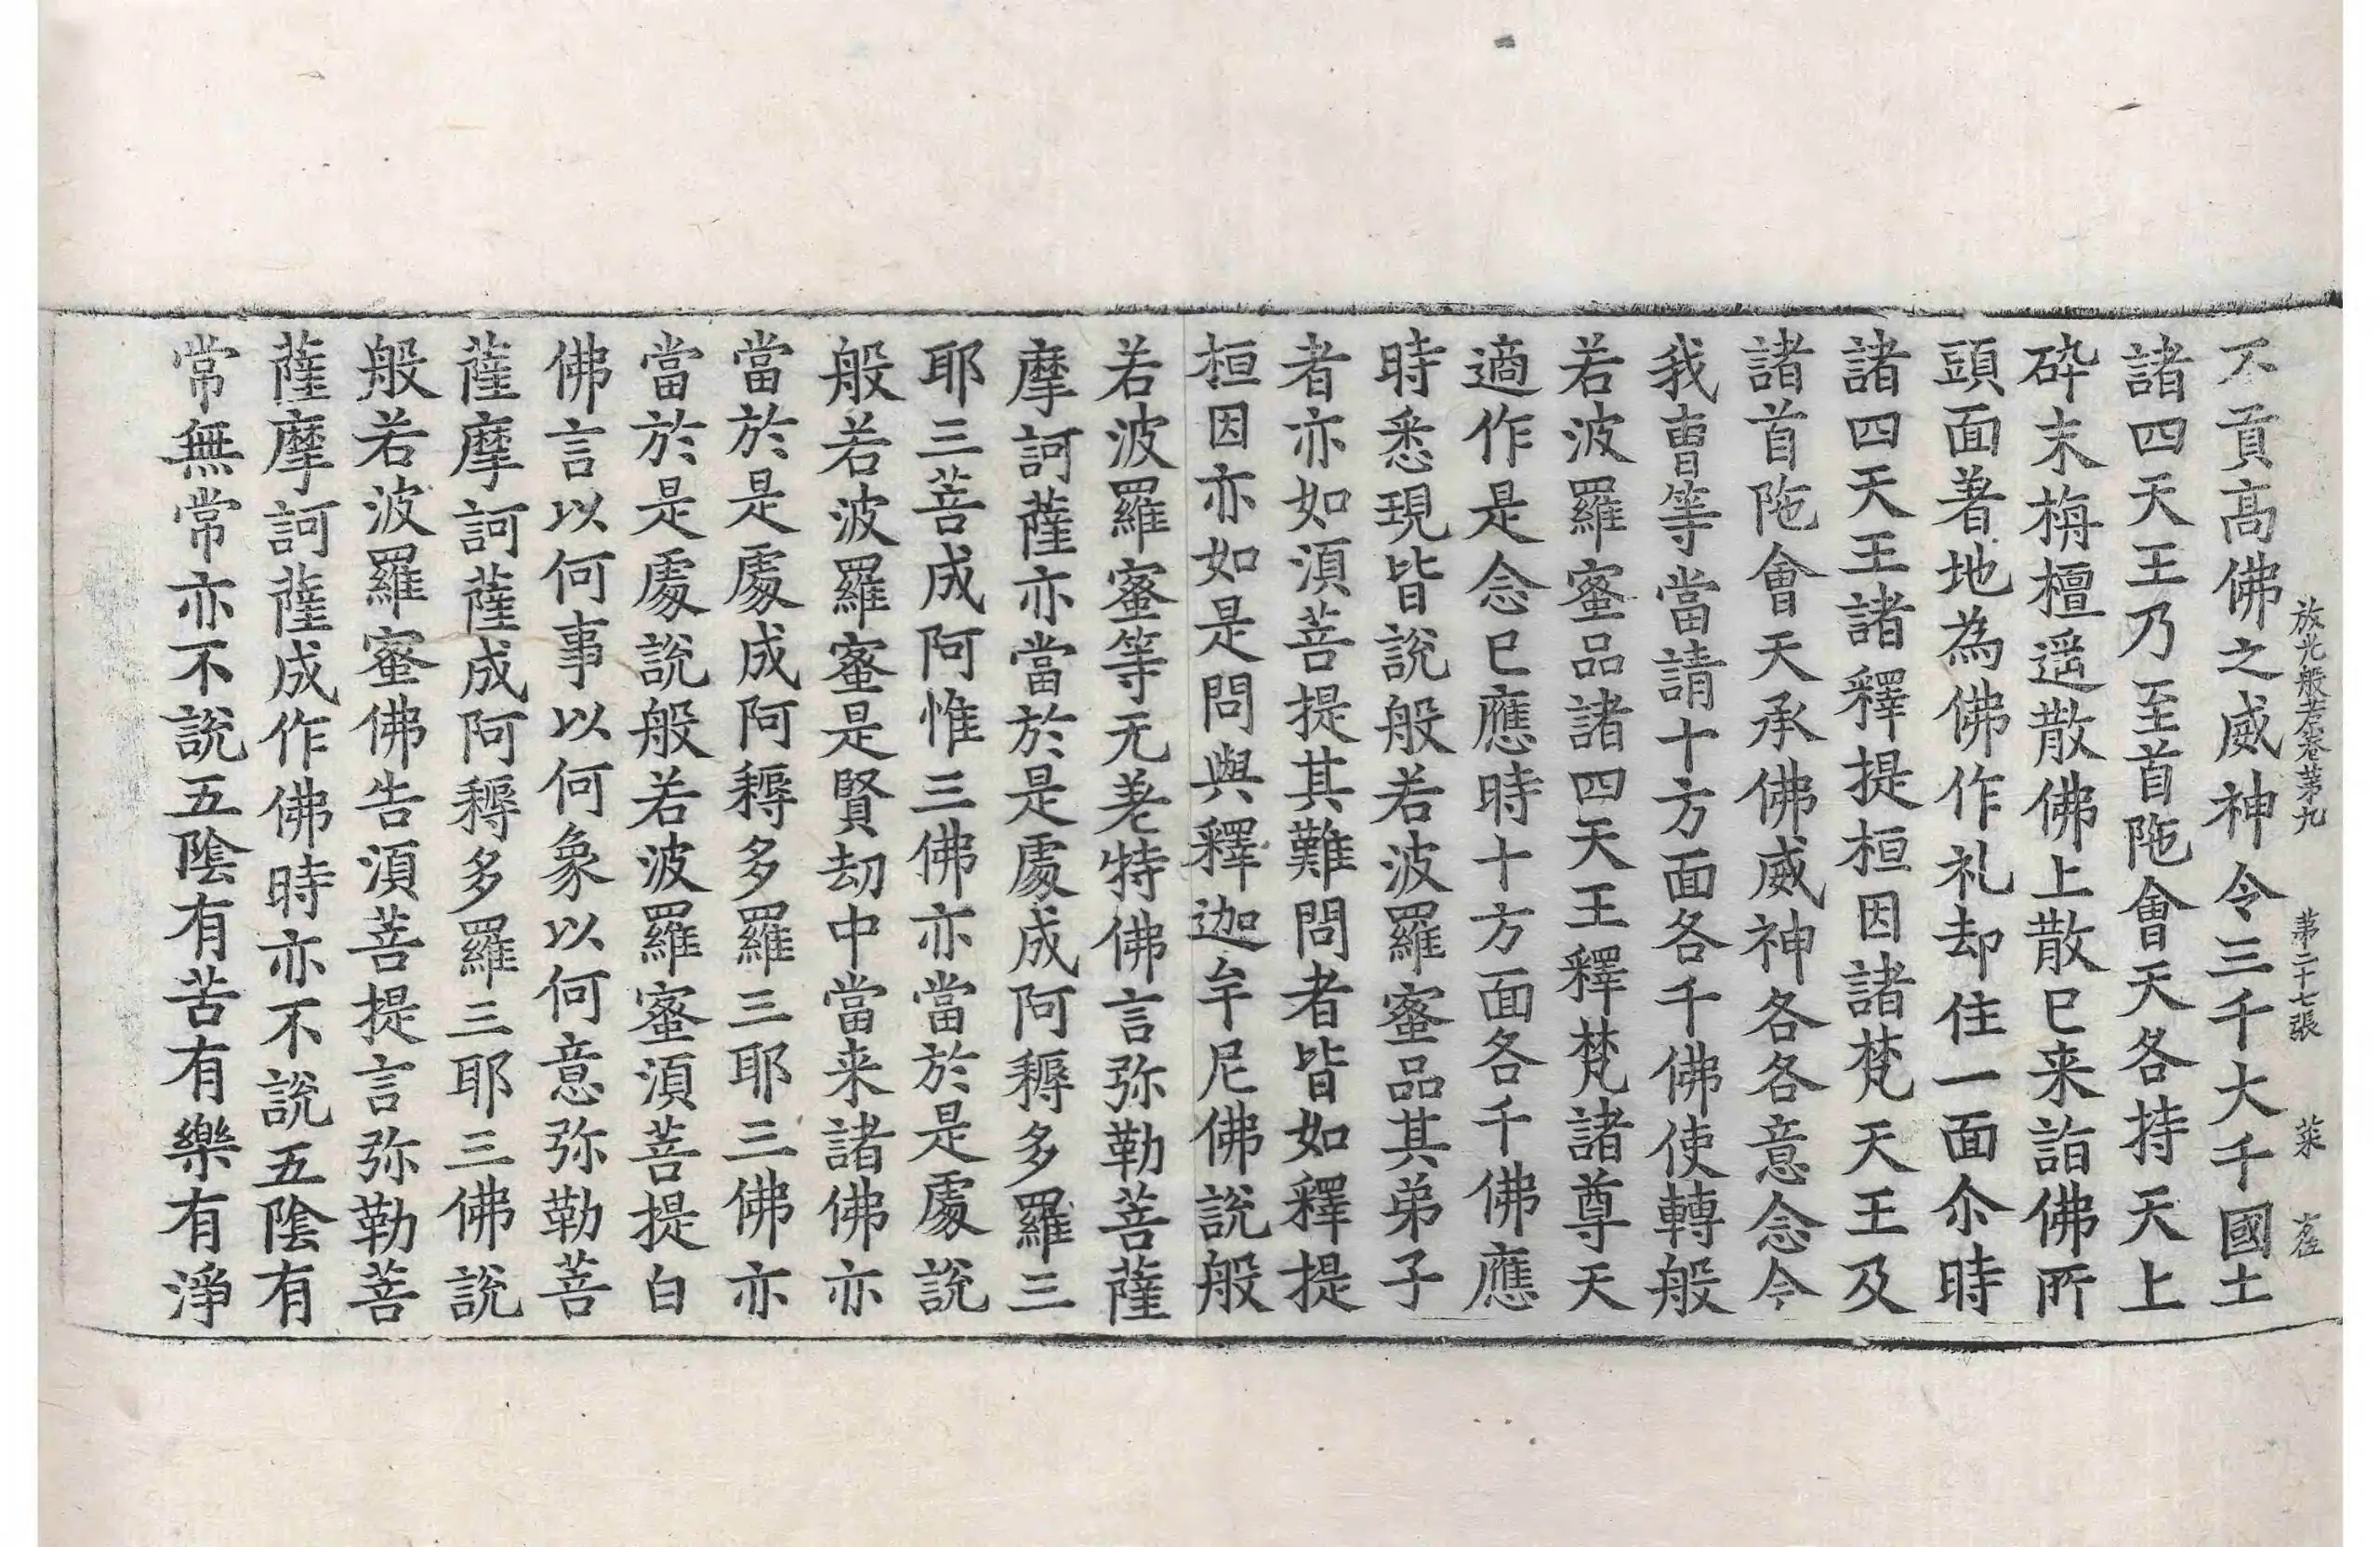 放光般若卷苐九 苐二十七張 菜
不貢高佛之威神令三千大千國土
諸四天王乃至首陁會天各持天上
碎末栴檀遥散佛上散已来詣佛所
頭面著地為佛作礼却住一面尒時
諸四天王諸釋提桓因諸梵天王及
諸首陁會天承佛威神各各意念今
我曺等當請十方面各千佛使轉般
若波羅蜜品諸四天王釋梵諸尊天
適作是念已應時十方面各千佛應
時悉現皆說般若波羅蜜品其弟子
者亦如湏菩提其難問者皆如釋提
桓因亦如是問與釋迦牟尼佛說般
若波羅蜜等无差特佛言弥勒菩薩
摩訶薩亦當於是處成阿耨多羅三
耶三菩成阿惟三佛亦當於是處說
般若波羅蜜是賢劫中當来諸佛亦
當於是處成阿耨多羅三耶三佛亦
當於是處說般若波羅蜜湏菩提白
佛言以何事以何象以何意弥勒菩
薩摩訶薩成阿耨多羅三耶三佛說
般若波羅蜜佛告湏菩提言弥勒菩
薩摩訶薩成作佛時亦不說五陰有
常無常亦不說五陰有苦有樂有淨